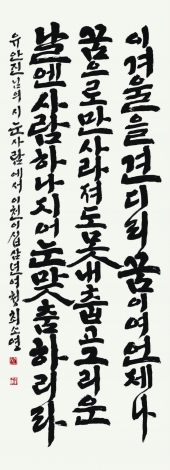 이겨울을견디리꿈이여언제나
꿈으로만사라져도못내춥고그리운
날엔사람하나지어눈맞춤하리라
유안진님의시눈사람에서이천이십삼년여청최소영